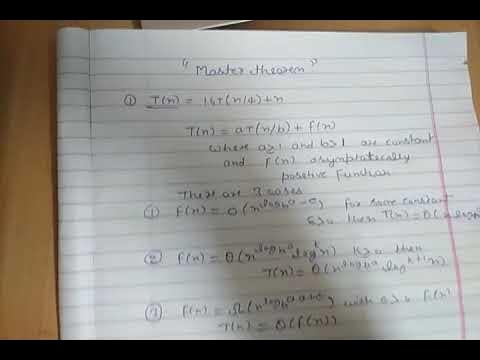 "Master theorem"
① T(n) = 16T(n/4)+n
T(n) = aT(n/b) + f(n)
where a≥1 and b>1 are constant
and f(n) asymptotically
positive function
There are 3 cases
① f(n) = O(n^log_b a-ε) for some constant
ε>0 then T(n) = Θ(n^log
② f(n) = Θ(n^log_b a log^k n) k≥0 then
T(n) = Θ(n^log_b a log^k+1 n)
③ f(n) = Ω(n^log_b a+ε) with ε>0 f(n)
T(n) = Θ(f(n))